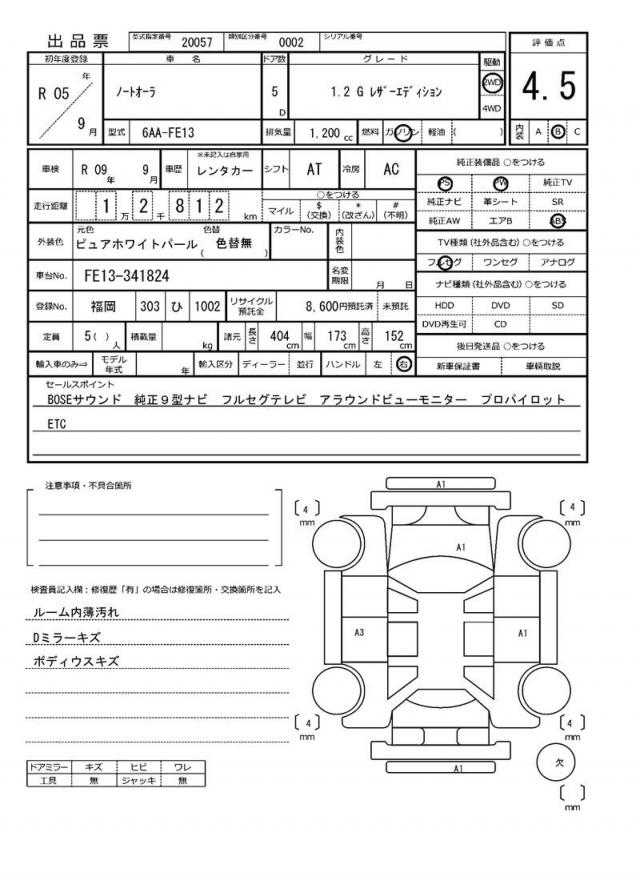 出品票 型式指定番号 20057 類別区分番号 0002 シリアル番号
評価点
4.5
内装 A B C
初年度登録 車名 ドア数 グレード 駆動
R 05 年 9 月 ノートオーラ 5 D 1.2 G レザーエディション 2WD 4WD
型式 6AA-FE13 排気量 1.200 cc 燃料 ガソリン 軽油 ( )
車検 R 09 年 9 月 車歴 ※未記入は自家用 レンタカー シフト AT 冷房 AC
走行距離 1 万 2 千 8 1 2 km ○をつける マイル $ (交換) * (改ざん) # (不明)
外装色 元色 ピュアホワイトパール 色替 ( 色替無 ) カラーNo. 内装色
車台No. FE13-341824 名変期限 月 日
登録No. 福岡 303 ひ 1002 リサイクル預託金 8,600円預託済 未預託
定員 5( ) 人 積載量 kg 諸元 長さ 404 cm 幅 173 cm 高さ 152 cm
輸入車のみ⇒ モデル年式 年 輸入区分 ディーラー 並行 ハンドル 左 右
純正装備品 ○をつける
PS PW 純正TV
純正ナビ 革シート SR
純正AW エアB ABS
TV種類(社外品含む) ○をつける
フルセグ ワンセグ アナログ
ナビ種類(社外品含む) ○をつける
HDD DVD SD
DVD再生可 CD
後日発送品 ○をつける
新車保証書 車輌取説
セールスポイント
BOSEサウンド 純正9型ナビ フルセグテレビ アラウンドビューモニター プロパイロット
ETC
注意事項・不具合箇所
検査員記入欄:修復歴「有」の場合は修復箇所・交換箇所を記入
ルーム内薄汚れ
Dミラーキズ
ボディウスキズ
ドアミラー キズ ヒビ ワレ
工具 無 ジャッキ 無
A1
[ 4 ] mm
[ 4 ] mm
A1
A3
A1
[ 4 ] mm
[ 4 ] mm
A1
欠
[ ] mm